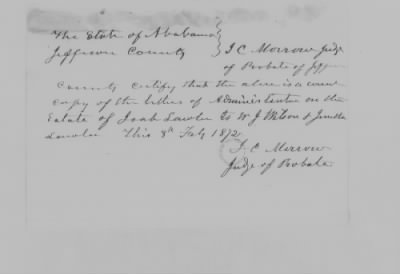 The State of Alabama
Jefferson County
J. C. Morrow Judge
of Probate of Jefferson
County certify that the above is a correct
copy of the letters of Administration on the
Estate of Joab Lawler to W J Wilson &
Lawler This 8th Feby 1872
J. C Morrow
Judge of Probate